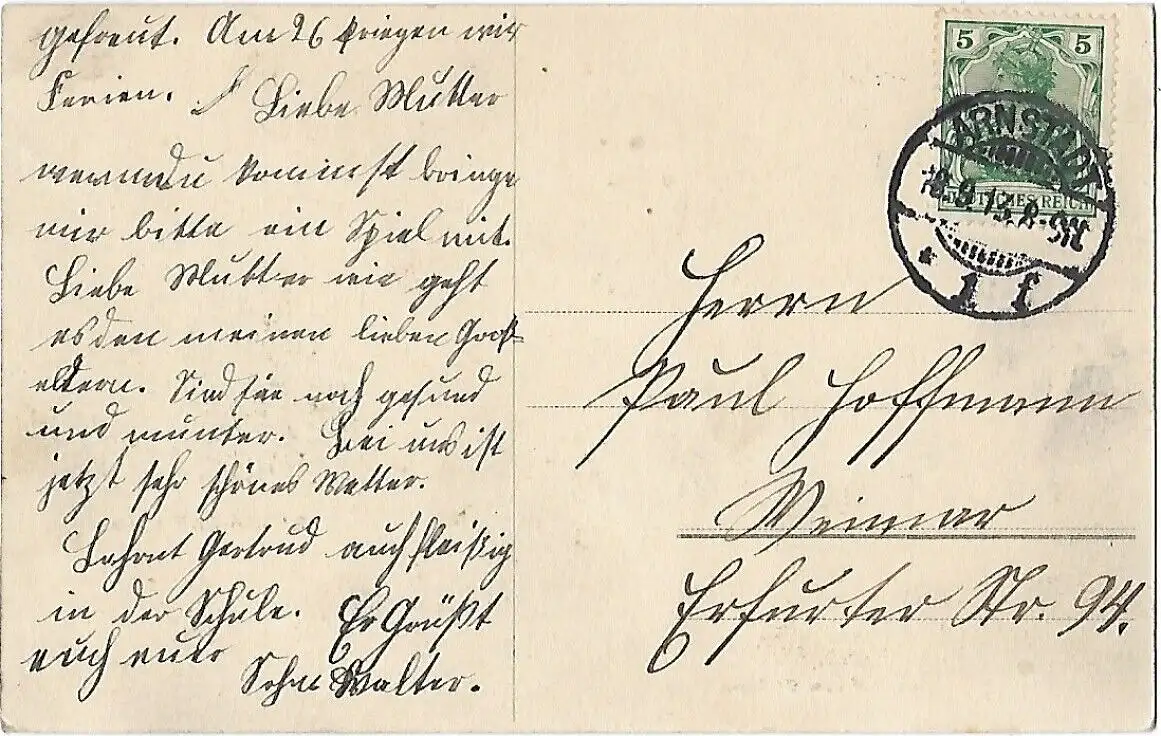 gefreut. Am 26 kriegen wir
Ferien. Liebe Mutter
wenn du kommst bringe
mir bitte ein Spiel mit.
Liebe Mutter wie geht
es den meinen lieben Groß-
eltern. Sind sie noch gesund
und munter. Bei uns ist
jetzt sehr schönes Wetter.
Lehrnt Gertrud auch fleißig
in der Schule. Er Grüßt
euch euer
Sohn Walter.
5 5
DEUTSCHES REICH
ARNSTADT
18.9.13. 8-9N.
* 1 f
Herrn
Paul Hoffmann
Weimar
Erfurter Str. 94.